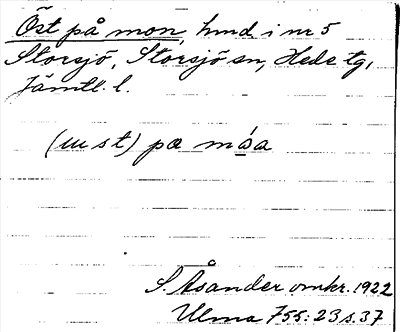 Öst på mon, hmd i nr 5
Storsjö, Storsjö sn, Hede tg,
Jämtl. l.
(ust) pa móa
S. Åsander omkr. 1922
Ulma 755:23 s. 37